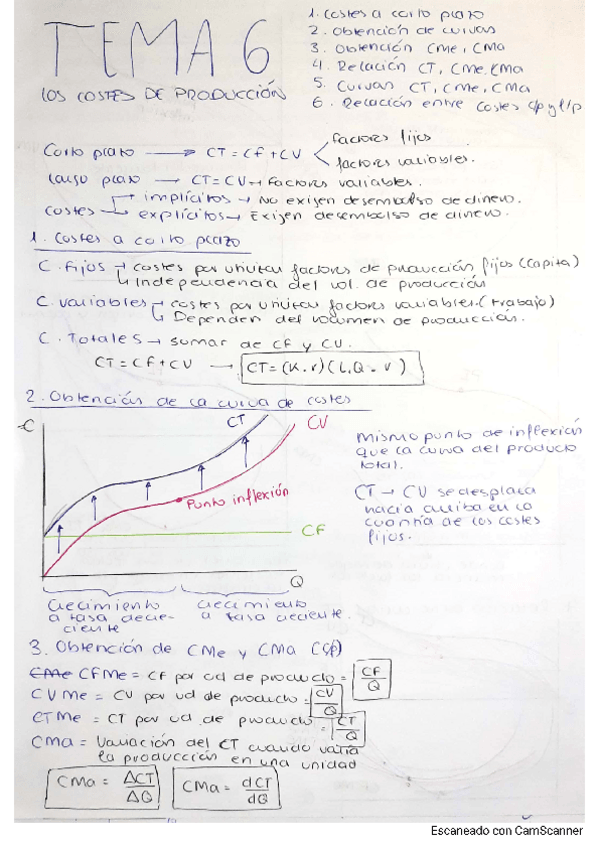 TEMA 6
LOS COSTES DE PRODUCCIÓN
1. Costes a corto plazo
2. Obtención de curvas
3. Obtención CMe, CMa
4. Relación CT, CMe, CMa
5. Curvas CT, CMe, CMa
6. Relación entre costes c/p y l/p
Corto plazo → CT = CF + CV < factores fijos
factores variables.
Largo plazo → CT = CV → Factores variables.
costes → implícitos → No exigen desembolso de dinero.
explícitos → Exigen desembolso de dinero.
1. Costes a corto plazo
C. Fijos → costes por utilizar factores de producción fijos (Capital)
↳ Independencia del vol. de producción
C. Variables → costes por utilizar factores variables. (trabajo)
↳ Dependen del volumen de producción.
C. Totales → sumar de CF y CV.
CT = CF + CV → CT = (K.r)(L,Q.V)
2. Obtención de la curva de costes
C
CT
CV
Punto inflexión
CF
Q
crecimiento
a tasa decre-
ciente
crecimiento
a tasa creciente.
Mismo punto de inflexión
que la curva del producto
total.
CT → CV se desplaza
hacia arriba en la
cuantía de los costes
fijos.
3. Obtención de CMe y CMa (c/p)
CFMe = CF por ud de producto = CF/Q
CVMe = CV por ud de producto = CV/Q
CTMe = CT por ud de producto = CT/Q
CMa = Variación del CT cuando varía
la producción en una unidad
CMa = ΔCT/ΔQ CMa = dCT/dQ
Escaneado con CamScanner